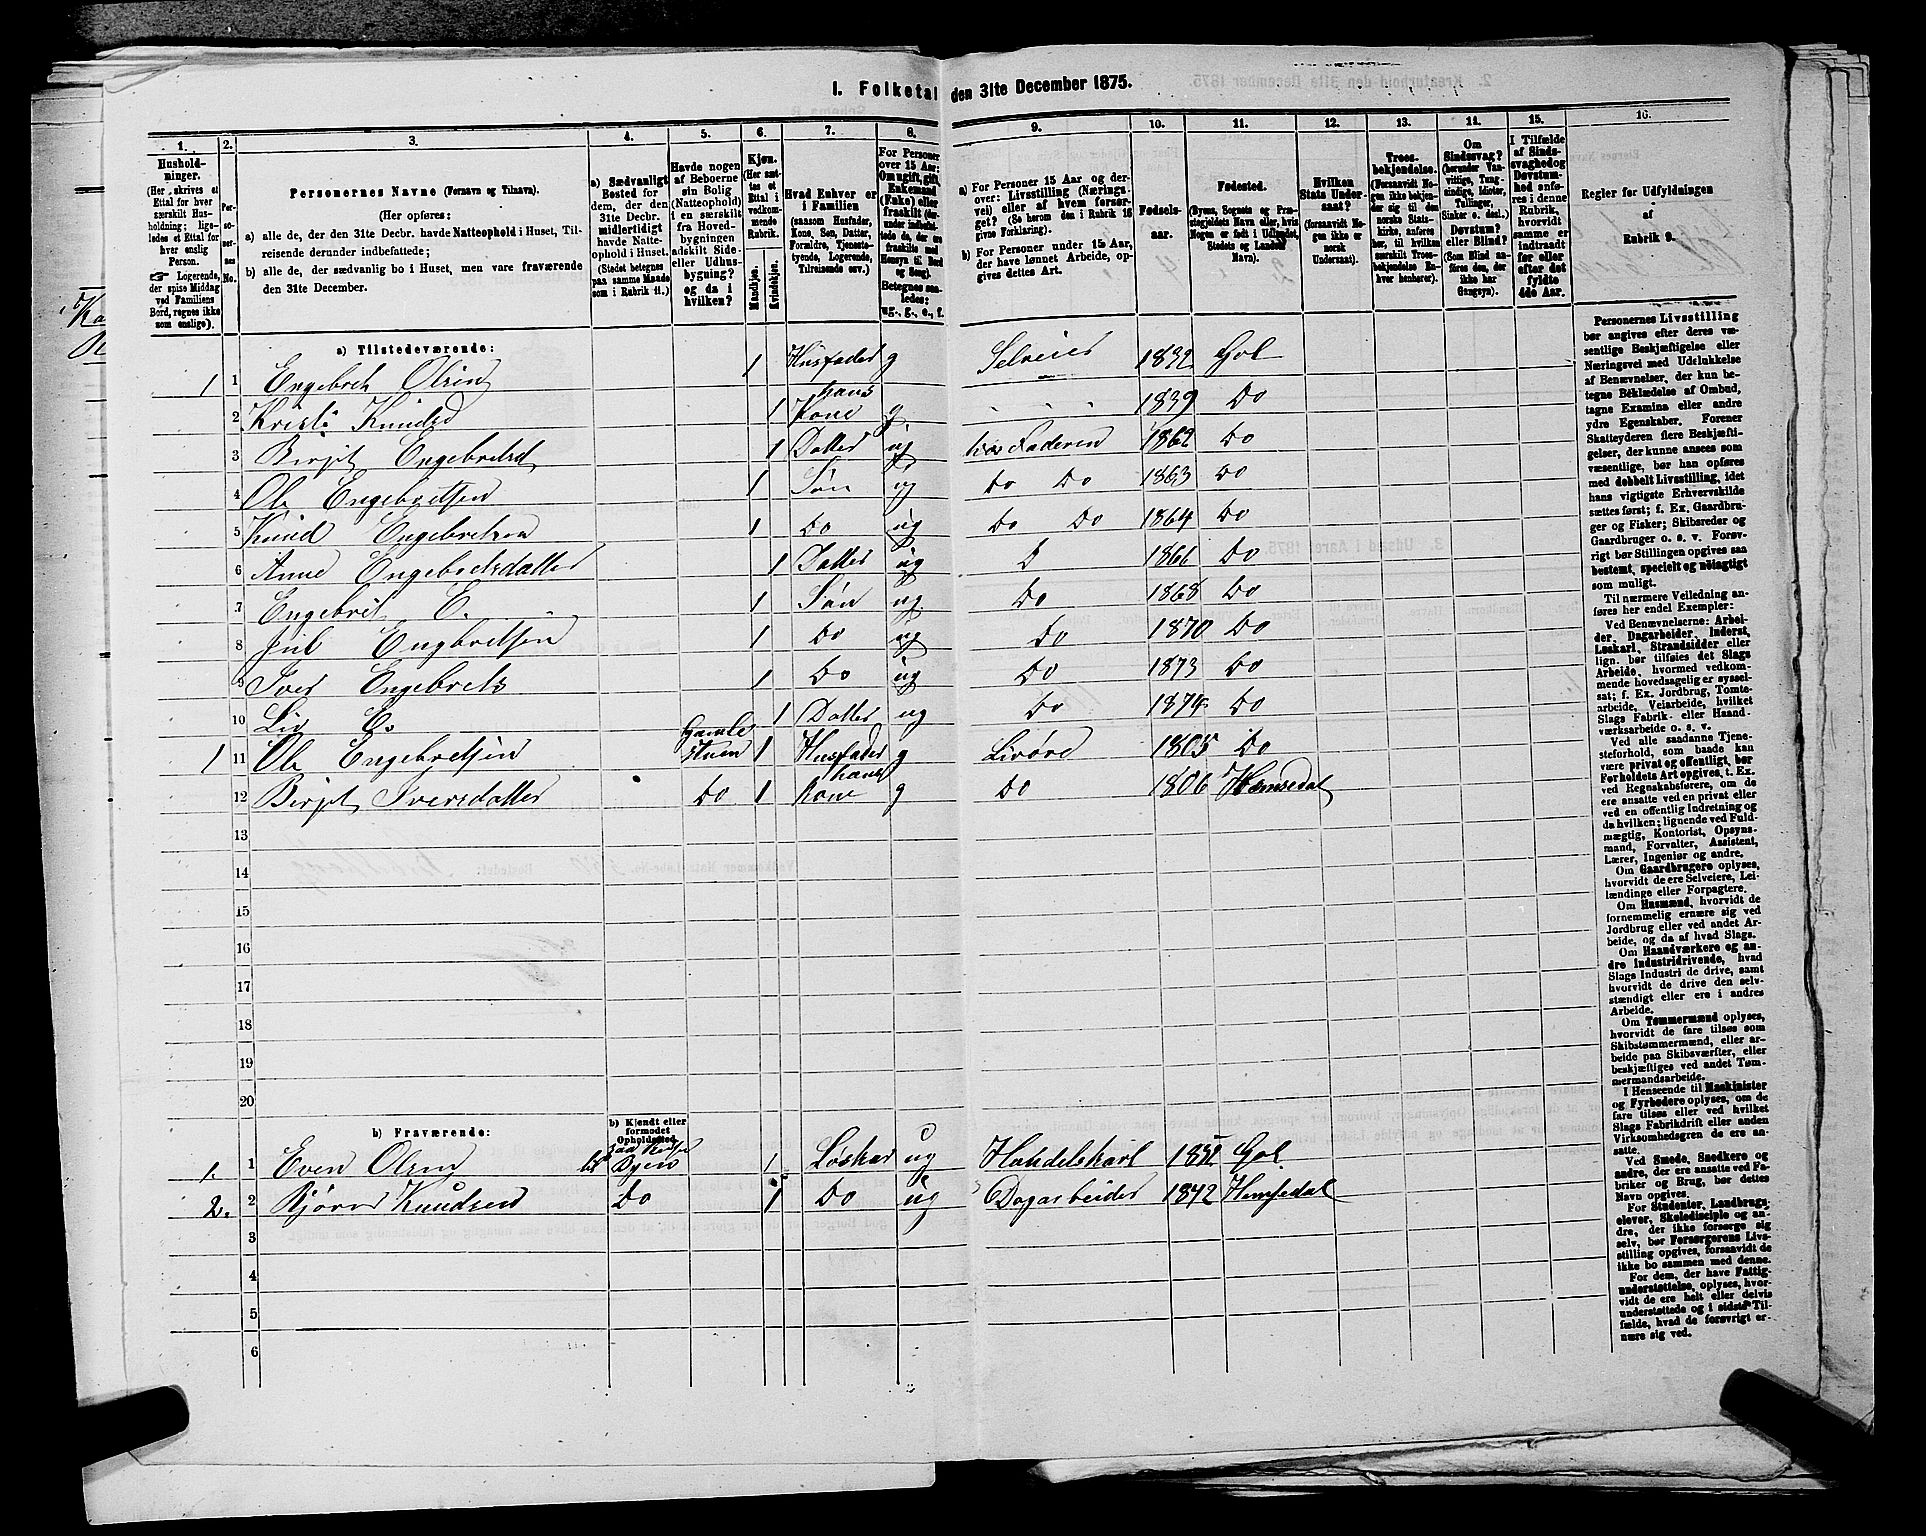 I. Folketal den 31te December 1875.
1. 2. 3. 4. 5. 6. 7. 8. 9. 10. 11. 12. 13. 14. 15. 16.
Hushold-
ninger.
(Her skrives et
Ettal for hver
særskilt Hus-
holdning; lige-
ledes et Ettal for
hver enslig
Person.
☞ Logerende,
der spise Middag
ved Familiens
Bord, regnes ikke
som enslige).
Per-
soner-
nes
No.
Personernes Navne (Fornavn og Tilnavn).
(Her opføres:
a) alle de, der den 31te Decbr. havde Natteophold i Huset, Til-
reisende derunder indbefattede;
b) alle de, der sædvanlig bo i Huset, men vare fraværende
den 31te December.
a) Sædvanligt
Bosted for
dem, der den
31te Decbr.
midlertidigt
havde Natte-
ophold i Huset.
(Stedet betegnes
paa samme Maade
som i Rubrik 11.)
Havde nogen
af Beboerne
sin Bolig
(Natteophold)
i en særskilt
fra Hoved-
bygningen
adskilt Side-
eller Udhus-
bygning?
og da i
hvilken?
Kjøn.
(Her sæt-
tes et
Ettal i
vedkom-
mende
Rubrik.
Mandkjøn.
Kvindekjøn.
Hvad Enhver er
i Familien
(saasom Husfader,
Kone, Søn, Datter,
Forældre, Tjeneste-
tyende, Logerende,
Tilreisende osv.)
For Personer
over 15 Aar:
Om ugift, gift,
Enkemand
(Enke) eller
fraskilt
Betegnes saa-
ledes:
ug., g., e., f.
a) For Personer 15 Aar og der-
over: Livsstilling (Nærings-
vei) eller af hvem forsør-
get? (Se herom den i Rubrik 16
givne Forklaring).
b) For Personer under 15 Aar,
der have lønnet Arbeide, op-
gives dettes Art.
Fødsels-
aar.
Fødested.
(Byens, Sognets og Præ-
stegjeldets Navn eller, hvis
Nogen er født i Udlandet,
Stedets og Landets
Navn).
Hvilken
Stats Under-
saat?
(foraavidt No-
gen ikke er
norsk
Undersaat).
Troes-
bekjendelse.
(Forsaavidt No-
gen ikke bekjen-
der sig til den
norske Stats-
kirke, anføres
her, til hvilken
særskilt Troes-
bekjendelse En-
hver henhører).
Om
Sindssvag?
(herunder Van-
vittige, Tung-
sindige, Idioter,
Tullinger,
Sinker o. desl.)
Døvstum?
eller Blind?
(Som Blind an-
føres den, der
ikke har
Gangsyn).
I Tilfælde
af Sinds-
svaghed og
Døvstum-
hed anfø-
res i denne
Rubrik,
hvorvidt
samme er
indtraadt
før eller
efter det
fyldte
4de Aar.
Regler for Udfyldningen
af
Rubrik 9.
a) Tilstedeværende:
1 1 Engebret Olsen 1 Husfader g Selveier 1832 Gol
2 Kristi Knudsd 1 hans Kone g 1839 Do
3 Birgit Engebretsd 1 Datter ug hos Faderen 1862 Do
4 Ole Engebretsen 1 Søn ug Do Do 1863 Do
5 Knud Engebretsen 1 Do ug Do Do 1864 Do
6 Anne Engebretsdatter 1 Datter ug D 1866 Do
7 Engebret E. 1 Søn ug Do 1868 Do
8 Juul Engbretsen 1 Do ug Do 1870 Do
9 Iver Engebrets 1 Do ug Do 1873 Do
10 Liv E. 1 Datter ug Do 1874 Do
1 11 Ole Engebretsen Gamle Stuen 1 Husfader g Livøre 1805 Do
12 Birgit Iversdatter Do 1 hans Kone g Do 1806 Hemsedal
13
14
15
16
17
18
19
20
b) Fraværende:
b) Kjendt eller
formodet
Opholdssted.
1. 1 Even Olsen paa Reise til Byen 1 Løskar ug Handelskarl 1832 Gol
2. 2 Bjørn Knudsen Do 1 Do ug Dagarbeider 1842 Hemsedal
3
4
5
6
Personernes Livsstilling
bør angives efter deres væ-
sentlige Beskjæftigelse eller
Næringsvei med Udelukkelse
af Benævnelser, der kun be-
tegne Beklædelse af Ombud,
tagne Examina eller andre
ydre Egenskaber. Forener
Skatteyderen flere Beskjæfti-
gelser, der kunne ansees som
væsentlige, bør han opføres
med dobbelt Livsstilling, idet
hans vigtigste Erhvervskilde
sættes først; f. Ex. Gaardbru-
ger og Fisker; Skibsreder og
Gaardbruger o. s. v. Forøv-
rigt bør Stillingen opgives saa
bestemt, specielt og nøiagtigt
som muligt.
Til nærmere Veiledning an-
føres her endel Exempler:
Ved Benævnelserne: Arbei-
der, Dagarbeider, Inderst,
Løskarl, Strandsidder eller
lign. bør tilføies det Slags
Arbeide, hvormed vedkom-
mende hovedsagelig er syssel-
sat; f. Ex. Jordbrug, Tomte-
arbeide, Veiarbeide, hvilket
Slags Fabrik- eller Haand-
værksarbeide o. s. v.
Ved alle saadanne Tjene-
steforhold, som baade kan
være privat og offentligt, bør
Forholdets Art opgives, t. Ex.
ved Regnskabsførere, om de
ere ansatte ved en privat eller
ved en offentlig Indretning og
da hvilken; lignende ved Fuld-
mægtig, Kontorist, Opsyns-
mand, Forvalter, Assistent,
Lærer, Ingeniør og andre.
Om Gaardbrugere oplyses,
hvorvidt de ere Selveiere, Lei-
lændinge eller Forpagtere.
Om Husmænd, hvorvidt de
fornemmelig ernære sig ved
Jordbrug eller ved andet Ar-
beide, og da af hvad Slags.
Om Haandværkere og an-
dre industridrivende, hvad
Slags Industri de drive, samt
hvorvidt de drive den selv-
stændigt eller ere i andres
Arbeide.
Om Tømmermænd oplyses,
hvorvidt de fare tilsøs som
Skibstømmermænd, eller ar-
beide paa Skibsværfter, eller
beskjæftiges ved andet Tøm-
mermandsarbeide.
I Henseende til Maskinister
og Fyrbødere oplyses, om de
fare tilsøs eller ved hvilket
Slags Fabrikdrift eller anden
Virksomhedsgren de ere an-
satte.
Ved Smede, Snedkere og
andre, der ere ansatte ved Fa-
briker og Brug, bør dettes
Navn opgives.
For Studenter, Landbrugs-
elever, Skoledisciple og an-
dre, der ikke forsørge sig
selv, bør Forsørgerens Livs-
stilling opgives, forsaavidt de
ikke bo sammen med denne.
For dem, der have Fattig-
understøttelse, oplyses, hvor-
vidt de ere helt eller delvis
understøttede og i sidste Til-
fælde, hvad de forøvrigt er-
nære sig ved.